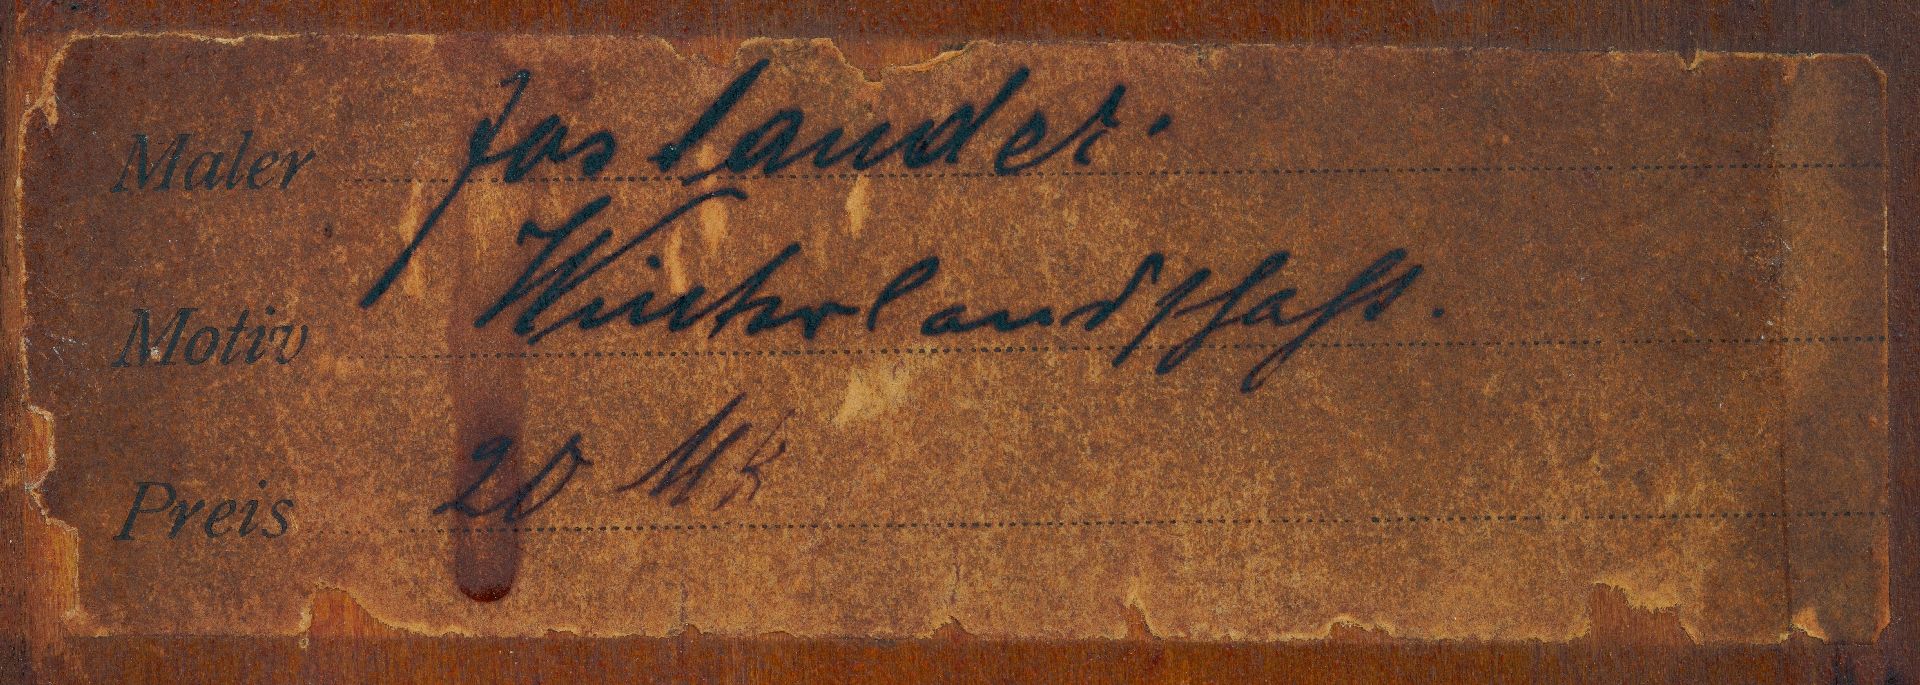 Maler Jos Sander.
Motiv Winterlandschaft.
Preis 20 Mk